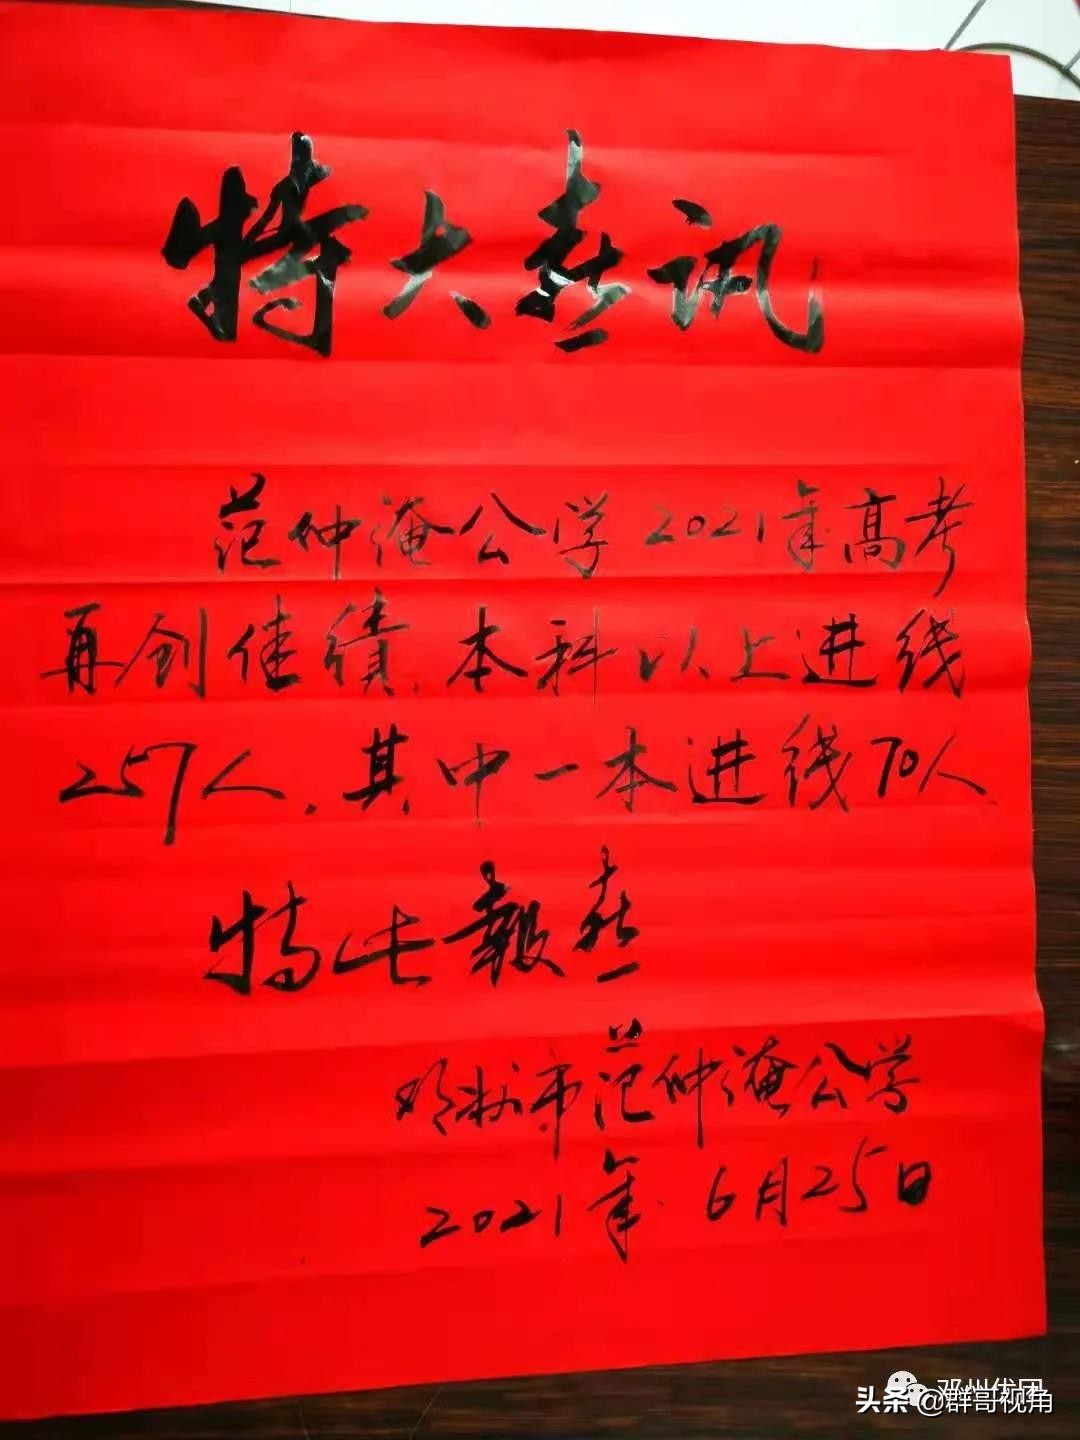 特大喜讯
范仲淹公学2021年高考
再创佳绩,本科以上进线
257人,其中一本进线70人.
特此報喜
邓州市范仲淹公学
2021年.6月25日
邓州优团
头条@群哥视角